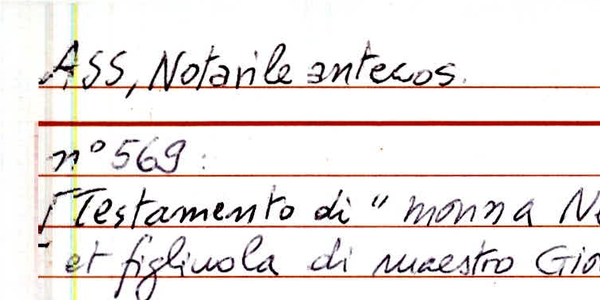 ASS, Notarile antecos.
n° 569:
Testamento di " monna
et figliuola di maestro